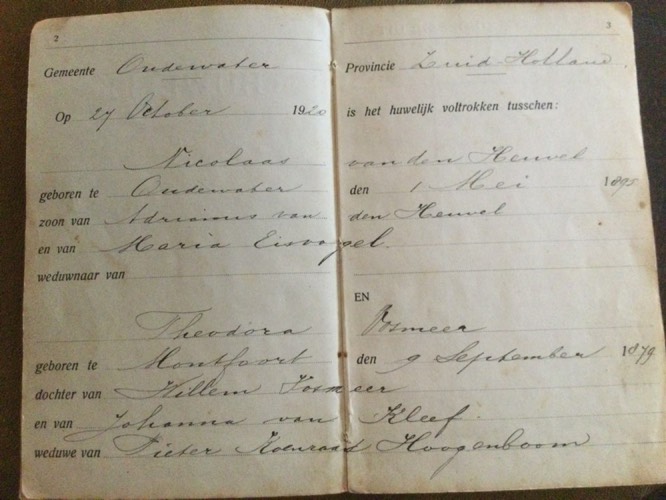 2 3
Gemeente Oudewater Provincie Zuid-Holland.
Op 27 October 1920 is het huwelijk voltrokken tusschen:
Nicolaas van den Heuvel
geboren te Oudewater den 1 Mei 1895
zoon van Adrianus van den Heuvel
en van Maria Eisvogel.
weduwnaar van
EN
Theodora Vosmeer
geboren te Montfoort den 9 September 1879
dochter van Willem Vosmeer
en van Johanna van Kleef.
weduwe van Pieter Hoogenboom